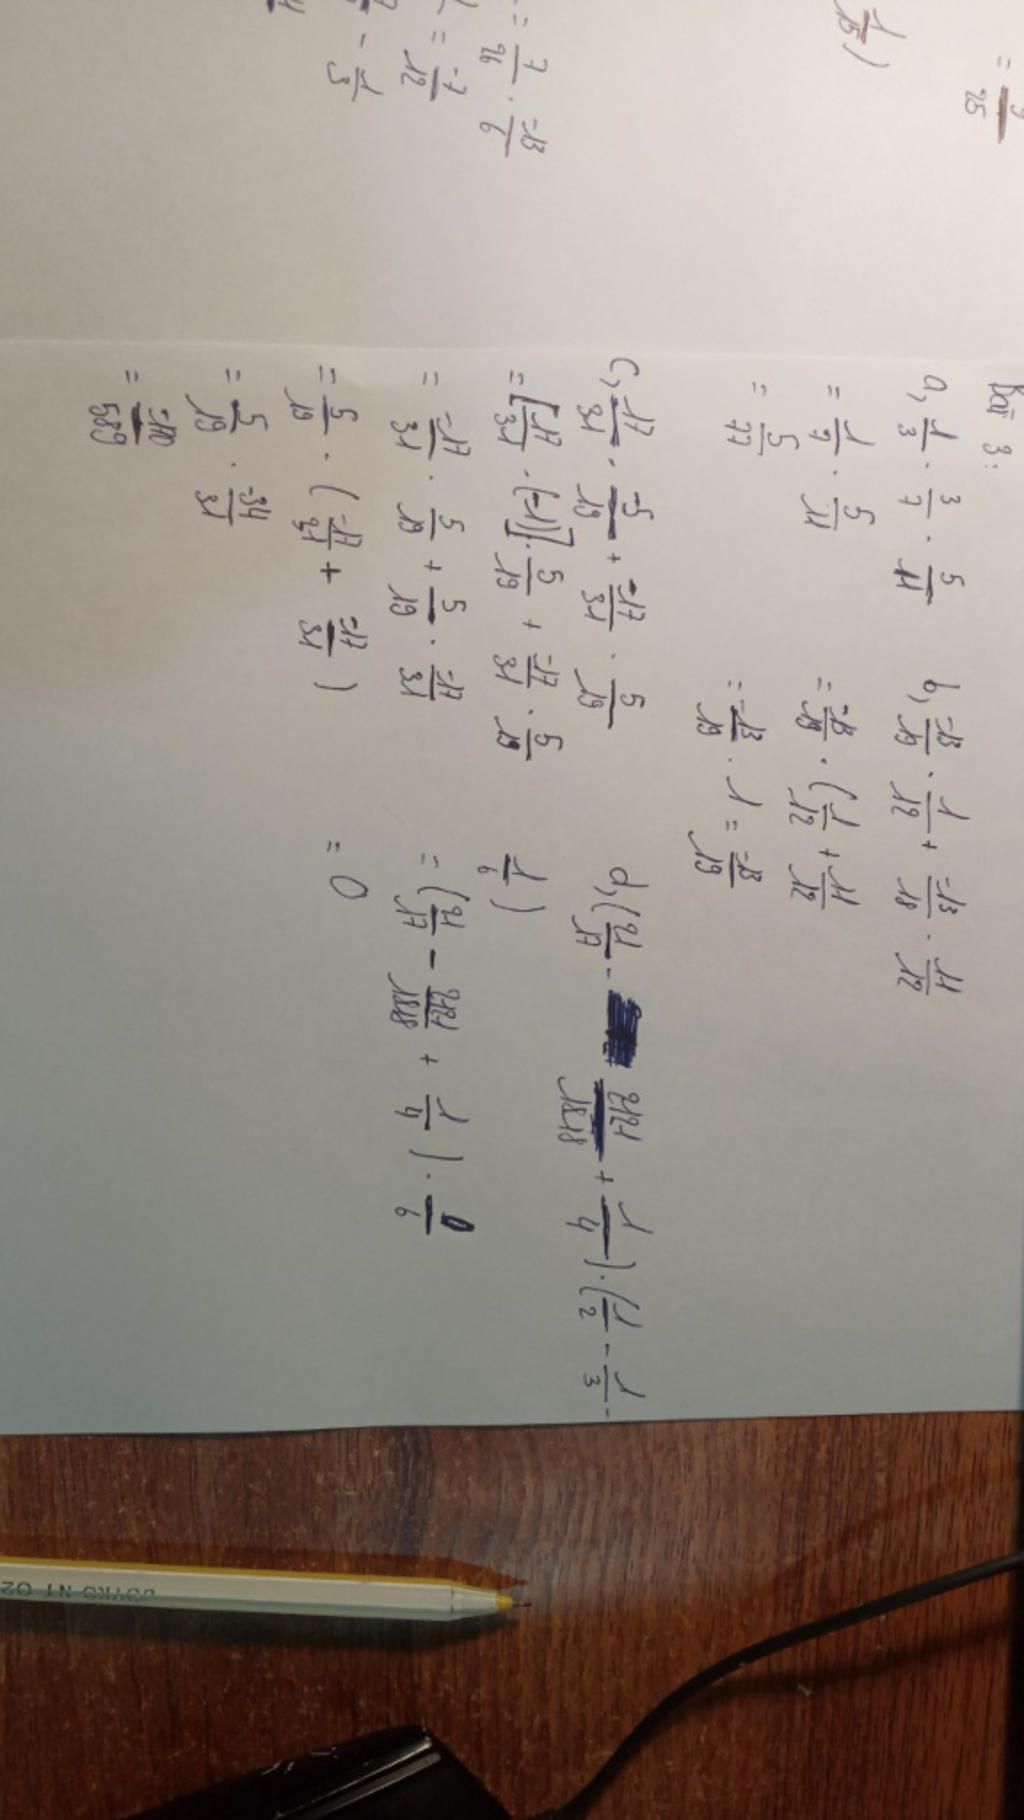 = 7/26 . -13/6
= -7/12
- 1/3
1/15)
Bài 3:
a, 1/3 . 3/7 . 5/11
= 1/7 . 5/11
= 5/77
b, -13/19 . 1/12 + -13/18 . 11/12
= -13/19 . (1/12 + 11/12
= -13/19 . 1 = -13/19
c, 17/31 . -5/19 + -17/31 . 5/19
= [17/31 . (-1)] . 5/19 + -17/31 . 5/19
= -17/31 . 5/19 + 5/19 . -17/31
= 5/19 . (-17/31 + -17/31)
= 5/19 . -34/31
= -170/589
d, (21/17 - 2121/1818 + 1/4) . (1/2 - 1/3 -
1/6)
= (21/17 - 2121/1818 + 1/4) . 0/6
= 0